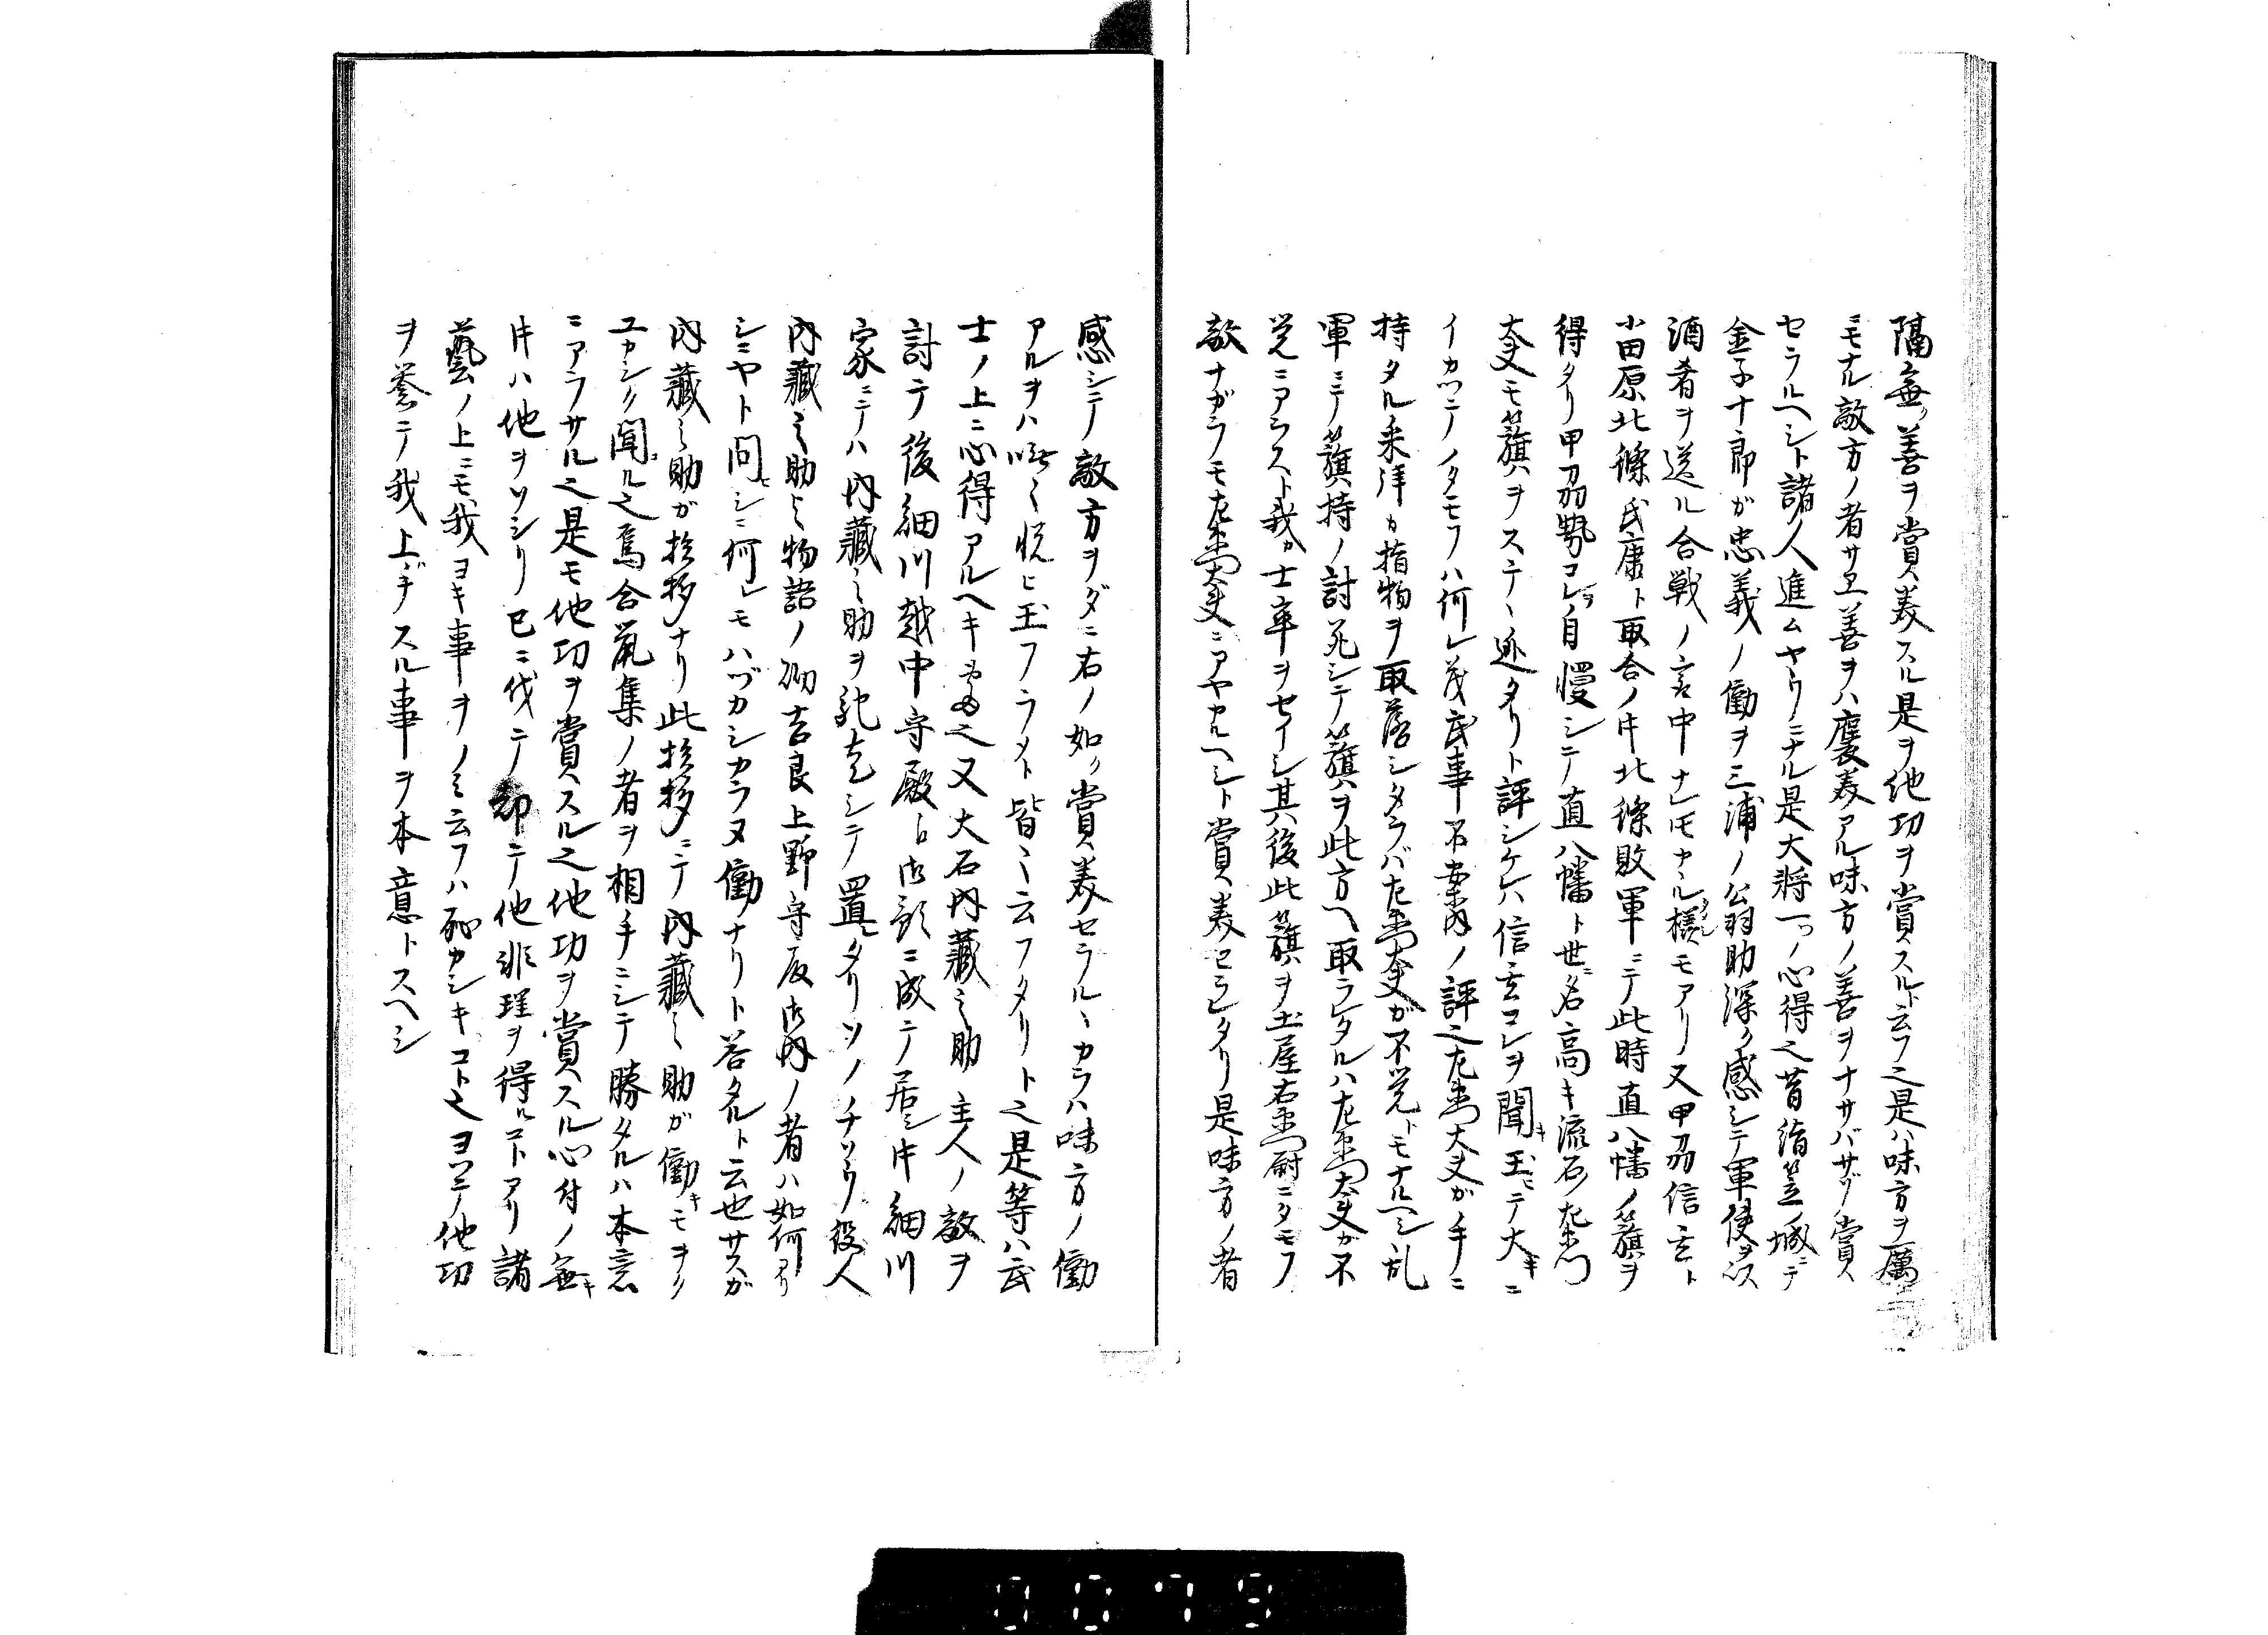 隔無ク善ヲ賞美スル是ヲ他功ヲ賞スルト云フ也是ハ味方ヲ厲
ニモナル敵方ノ者サヱ善ヲハ褒美アル味方ノ善ヲナサバサゾ賞
セラルヘシト諸人進ムヤウニナル是大将一ツノ心得也昔 ノ城ニテ
金子十郎が忠義ノ働ヲ三浦ノ 助深ク感シテ軍使ヲ以
酒肴ヲ送ル合戦ノ言中ナレ𪜈カヽル様モアリ又甲刕信玄ト
小田原北條氏康ト取合ノ片北條敗軍ニテ此時直八幡ノ籏ヲ
得タリ甲刕勢コレヲ自慢シテ直八幡ト世ニ名高キ 左衛門
大夫モ籏ヲステヽ迯タリト評シケレハ信玄コレヲ聞キ玉ヒテ大キニ
イカツテノタモフハ何レ茂武事不案内ノ評也左衛門大夫ガ手ニ
持タル采拝カ指物ヲ取落シタラバ左衛門大夫ガ不覚トモナルヘシ乱
軍ニテ籏持ノ討死シテ籏ヲ此方ヘ取ラレタルハ左衛門大夫カ不
覚ニアラスト我カ士卒ヲセイシ其後此籏ヲ土屋右衛門尉ニタモフ
敵ナガラモ左衛門大夫ニアヤカルヘシト賞美セラレタリ是味方ノ者
感シテ敵方ヲダニ右ノ如ク賞美セラルヽカラハ味方ノ働
アルヲハ 悦ヒ玉フラメト皆々云フタリト也是等ハ武
士ノ上ニ心得アルヘキ 也又大石内藏之助主人ノ敵ヲ
討テ後細川越中守殿ヘ御預ニ成テ居シ片細川
家ニテハ内藏之助ヲ馳走シテ置レタリソノチソウノ役人
内藏之助ト物語ノ砌吉良上野守殿御内ノ者ハ如何アリ
シニヤト問ヒシニ何レモハヅカシカラヌ働ナリト答タルト云也サスガ
内藏之助が挨拶ナリ此挨拶ニテ内藏之助が働キモヲク
ユカシク聞ル也烏合 集ノ者ヲ相手ニシテ勝タルハ本意
ニアラサル也是モ他功ヲ賞スル也他功ヲ賞スル心付ノ無キ
片ハ他ヲソシリ已ニ伐テ却テ他非理ヲ得ルコトアリ諸
藝ノ上ニモ我ヨキ事ヲノミ云フハ恥カシキコト也ヨツテ他功
ヲ誉テ我上ヲデスル事ヲ本意トスヘシ